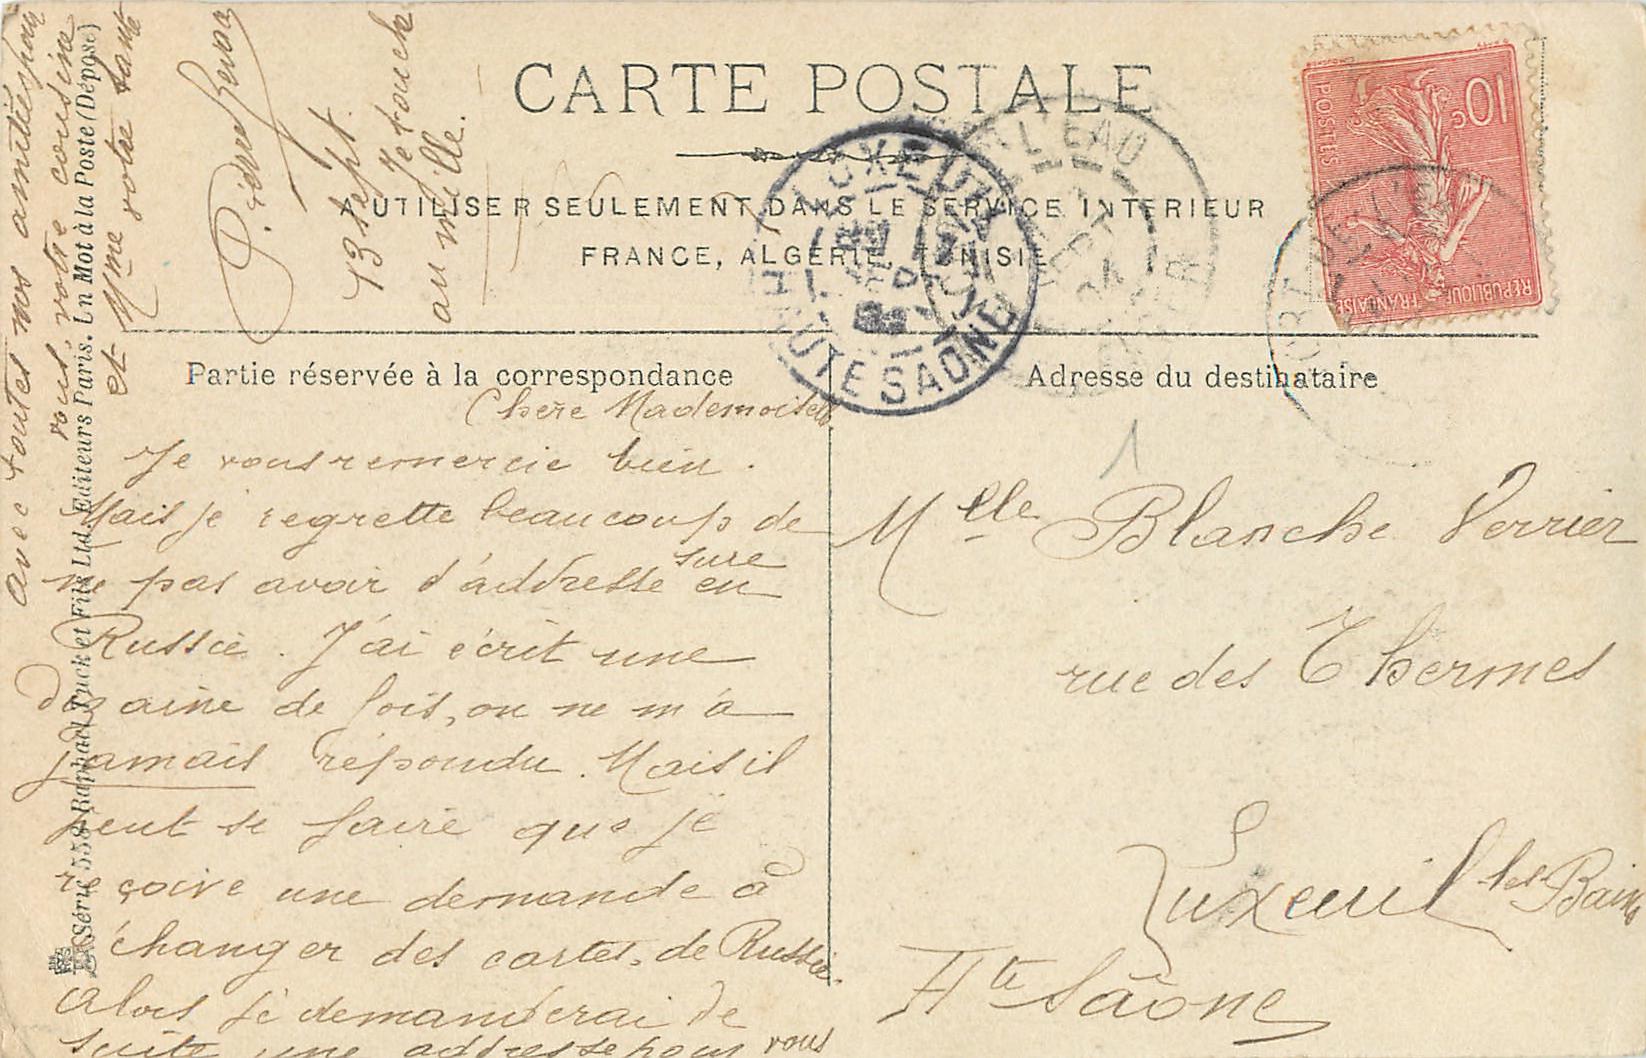 CARTE POSTALE
A UTILISER SEULEMENT DANS LE SERVICE INTERIEUR
FRANCE, ALGERIE, TUNISIE
Partie réservée à la correspondance
Adresse du destinataire
Chère Mademoiselle
Je vous remercie bien.
Mais je regrette beaucoup de
ne pas avoir d'addresse sure en
Russie. J'ai écrit une
dizaine de fois, on ne m'a
jamais répondu. Mais il
peut se faire que je
reçoive une demande à
échanger des cartes de Russie.
Alors je demanderai de
suite une addresse pour vous
avec toutes nos amitiés pour
vous, votre cousine
et Mme votre tante
13 sept.
Je touche
au mille.
Mlle Blanche Verrier
rue des Thermes
Luxeuil les Bains
Hte Saône
Série 558 Raphael Tuck et Fils Ltd, Editeurs Paris. Un Mot à la Poste (Déposé)
LUXEUIL
HAUTE SAONE
10c
POSTES
REPUBLIQUE
FRANCAISE
1